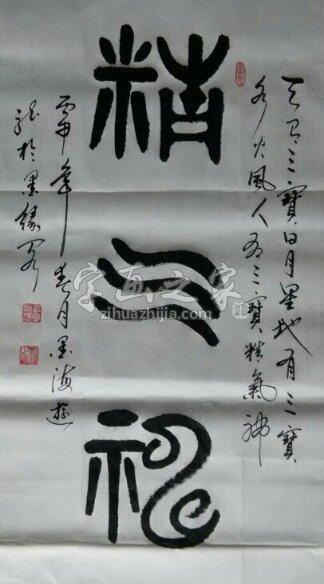 天有三寶日月星地有三寶
水火風人有三寶精氣神
精
气
神
丙申年春月墨海游
龍於墨緣閣
字画之家
zihuazhijia.com